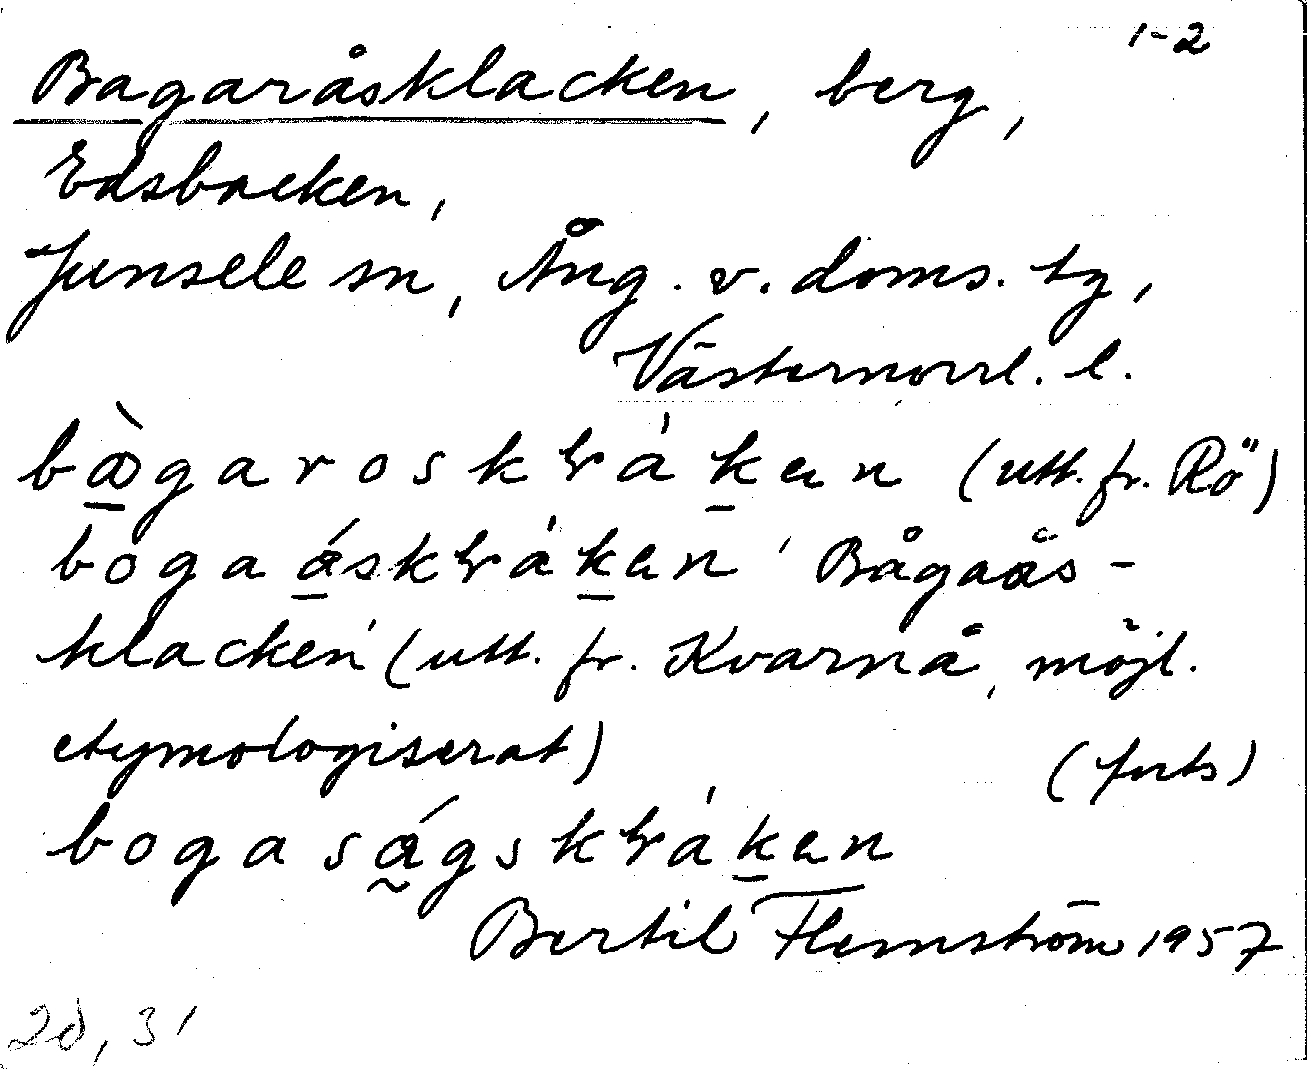 1-2
Bagaråsklacken, berg,
Edsbacken,
Junsele sn, Ång. v. doms. tg,
Västernorrl. l.
bàgaroskɽáken (utt. fr. Rö)
bogaáskɽáken 'Bågaås-
klacken' (utt. fr. Kvarnå, möjl.
etymologiserat) (forts)
bogaságskɽáken
Bertil Flemström 1957
2d, 3'